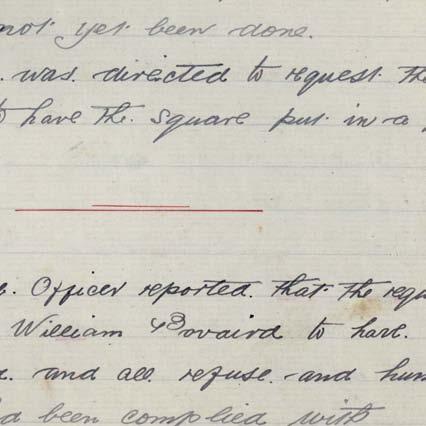 not yet been done.
. was directed to request the
to have the square put in a
. Officer reported that the requ
William to have.
. and all refuse and hum
d been complied with